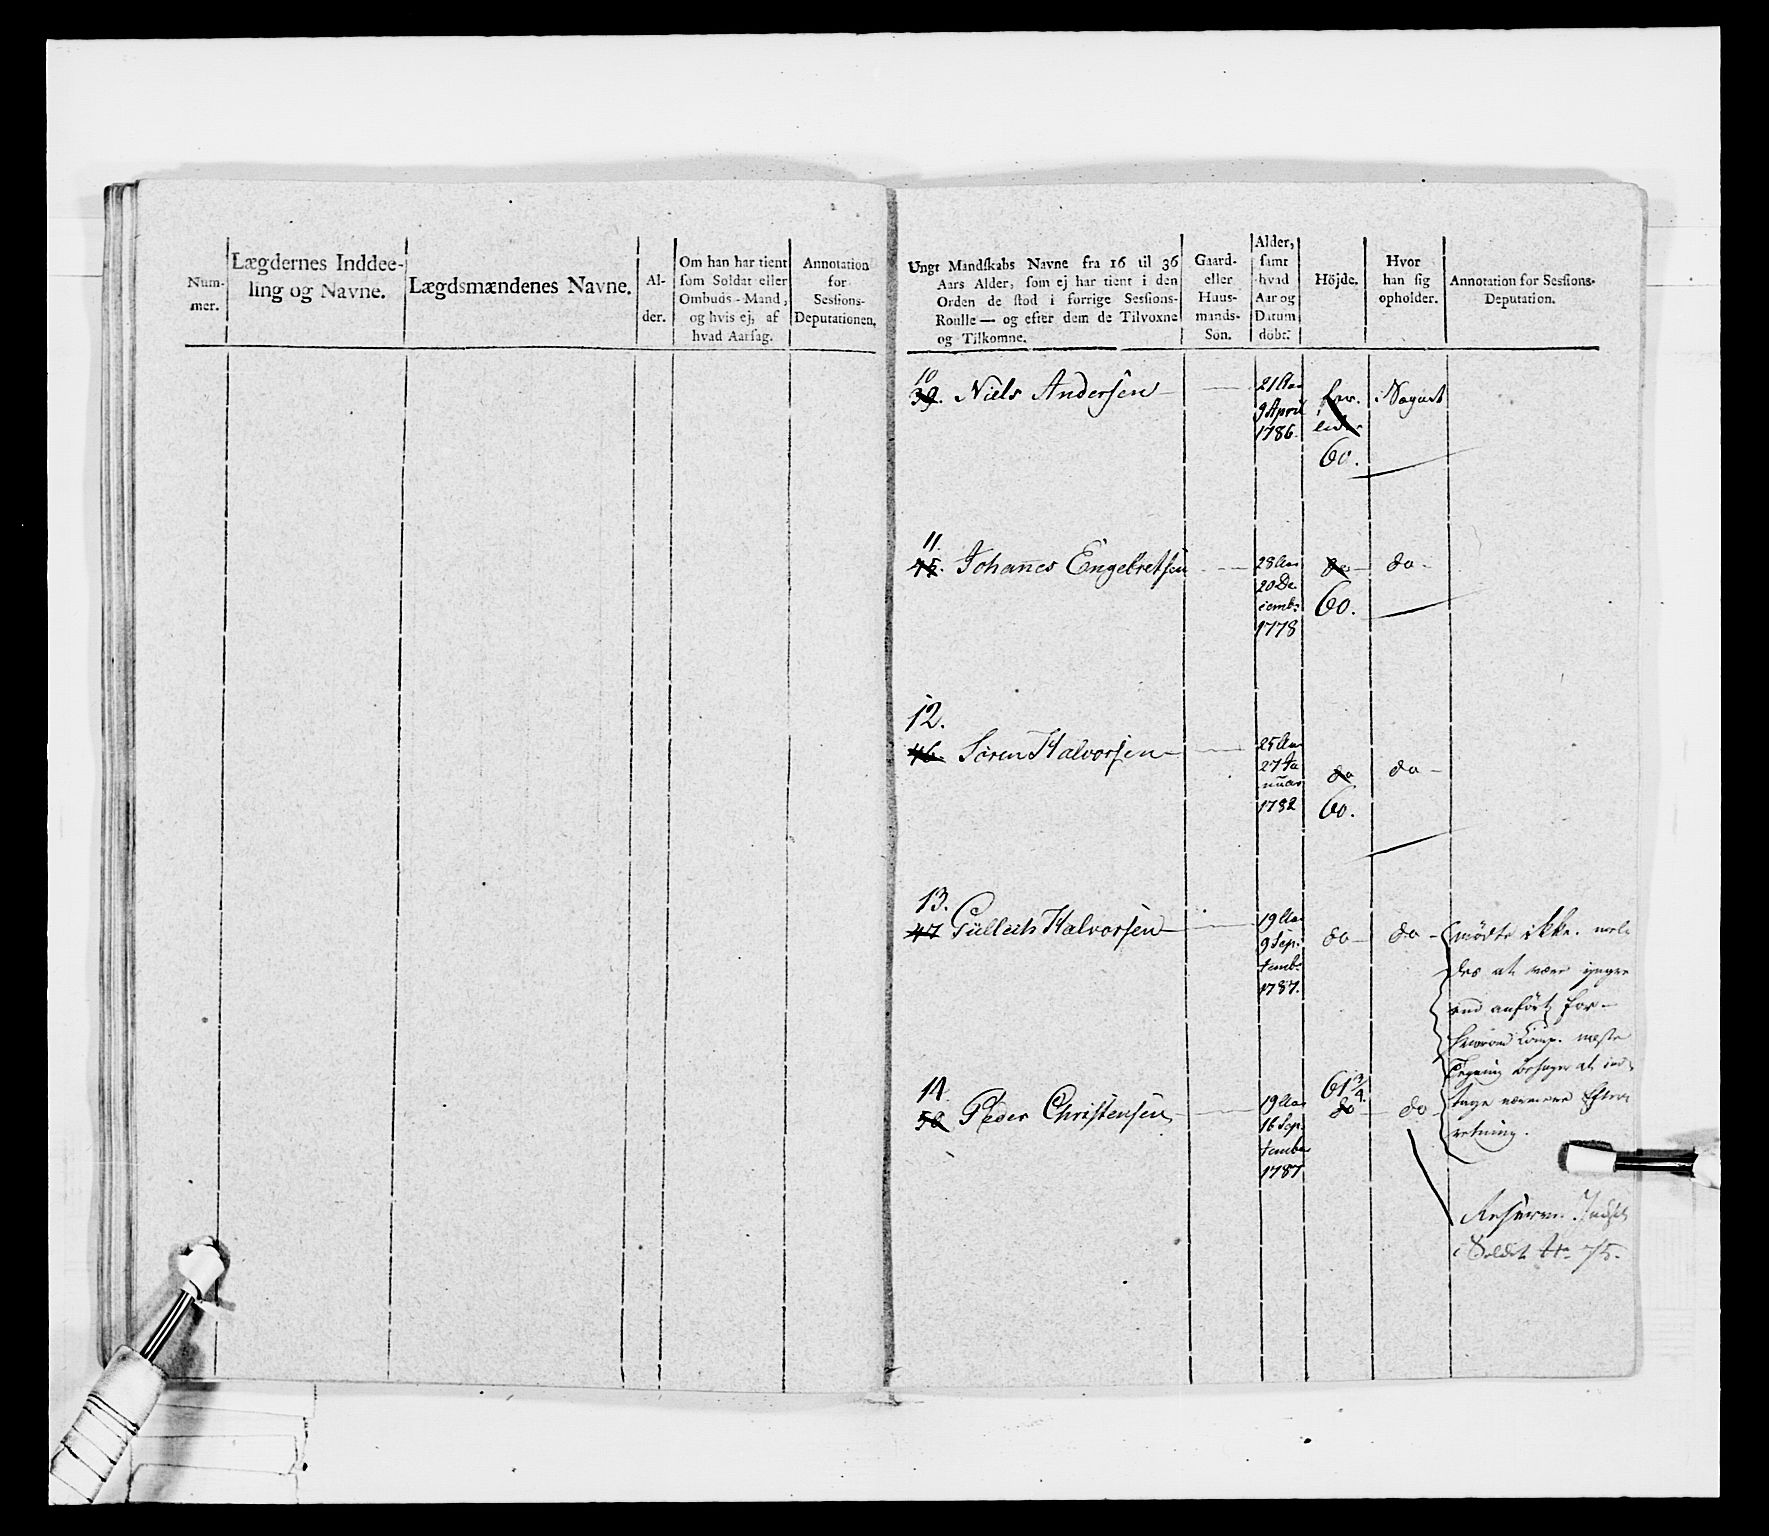 Num-
mer.
Lægdernes Inddee-
ling og Navne.
Lægdsmændenes Navne.
Al-
der.
Om han har tient
som Soldat eller
Ombuds-Mand,
og hvis ej, af
hvad Aarsag.
Annotation
for
Sessions-
Deputationen.
Ungt Mandskabs Navne fra 16 til 36
Aars Alder, som ej har tient i den
Orden de stod i forrige Sessions-
Roulle — og efter dem de Tilvoxne
og Tilkomne.
Gaard-
eller
Huus-
mands-
Søn.
Alder,
samt
hvad
Aar og
Datum
døbt.
Höjde.
Hvor
han sig
opholder.
Annotation for Sessions-
Deputation.
10
39. Niels Andersen
21 Aar
9 April
1786.
60.
11.
45. Johannes Engebretsen
28 Aar
20 De
cemb:
1778
do
60.
do
12.
46. Søren Halvorsen
25 Aar
27 Ja
nuar
1782
do
60.
do
13.
47 Gulleich Halvorsen
19 Aar
9 Sep:
temb:
1787.
do
do
mødte ikke. mel
des at være yngre
end anført, for-
Comp. næste
at ind
tage nærmere Efter
retning.
14.
50 Peder Christensen
19 Aar
16 Sep:
tember
1787
61 3/4
do
do
Reserve Indsk
i Soldt No 75.